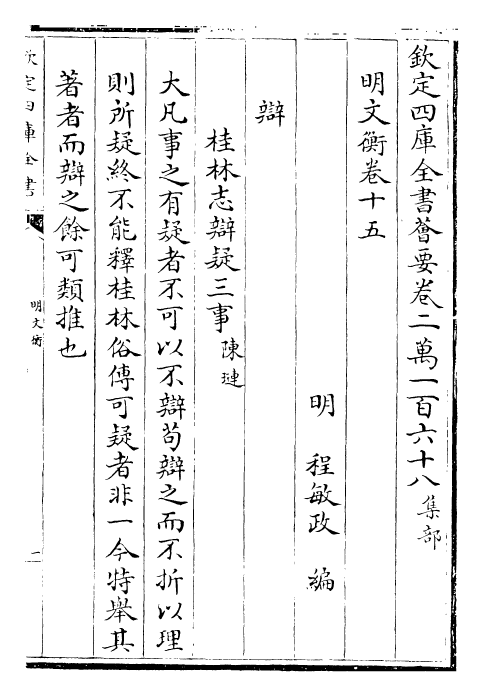 欽定四庫全書薈要卷二萬一百六十八集部
明文衡卷十五
明 程敏政 編
辯
桂林志辯疑三事陳璉
大凡事之有疑者不可以不辯茍辯之而不折以理
則所疑終不能釋桂林俗傳可疑者非一今特舉其
著者而辯之餘可類推也
欽定四庫全書
明文衡
一